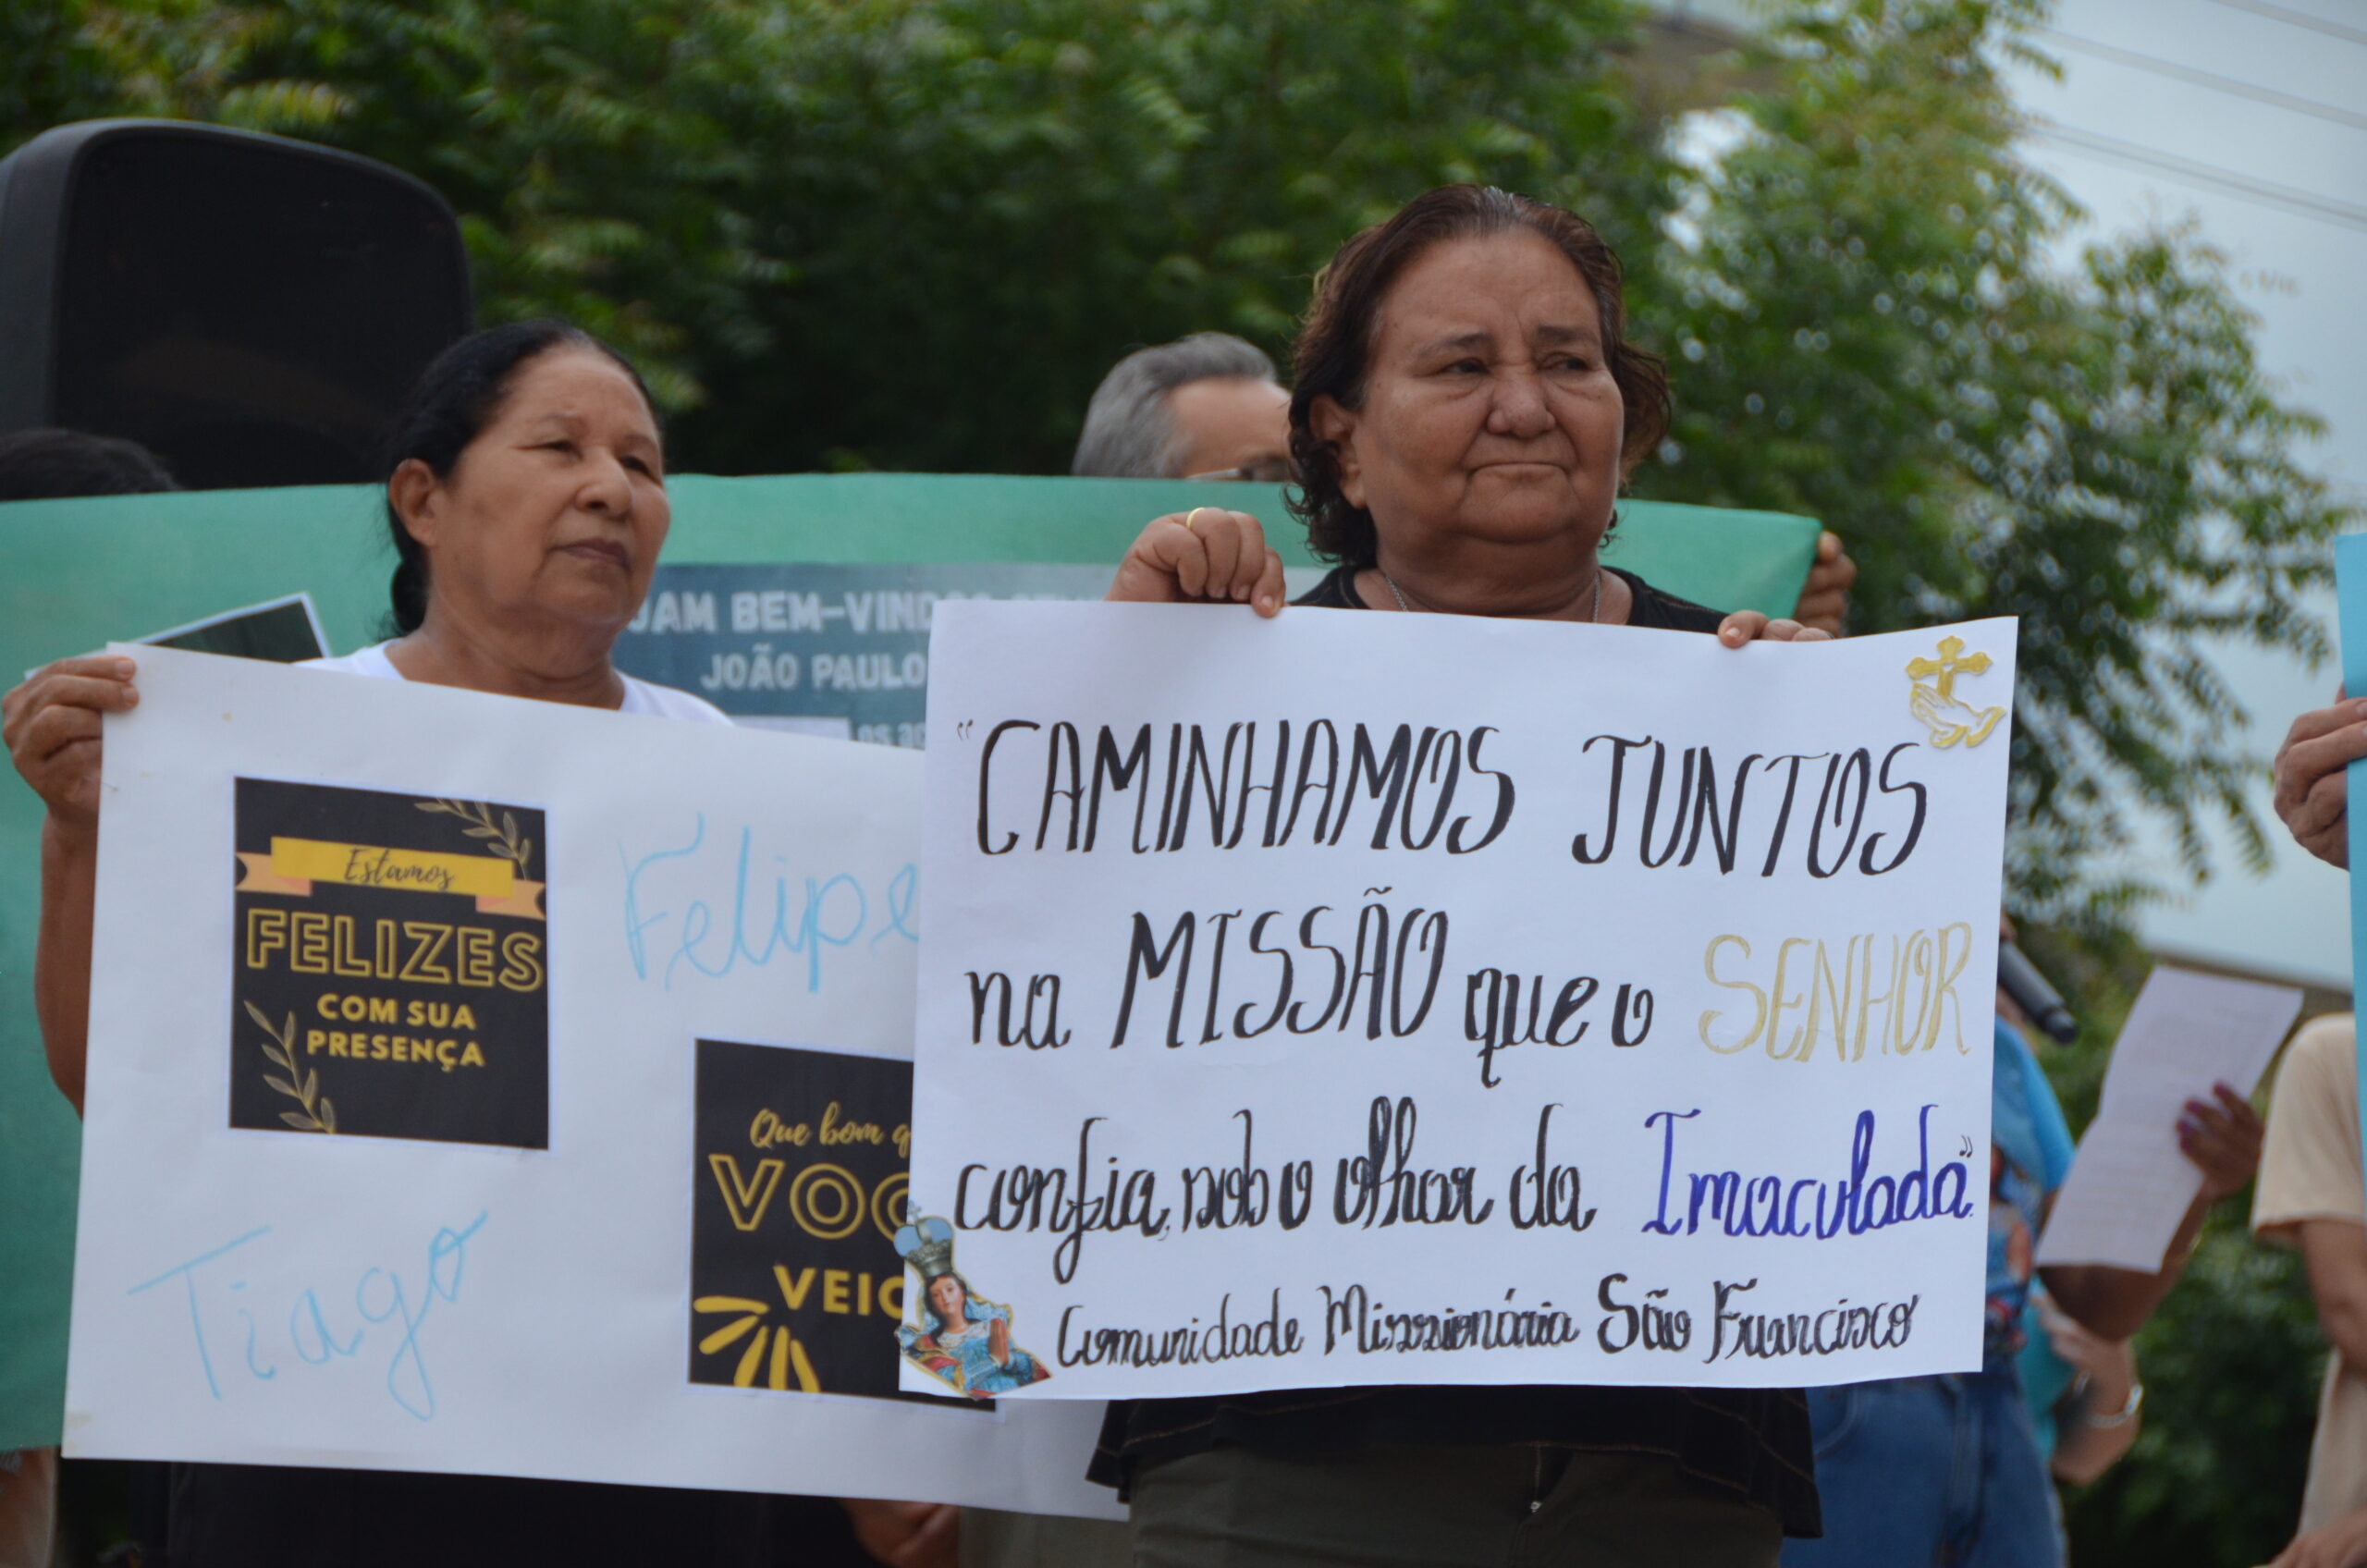 BEM-VIND
JOÃO PAULO
Estamos
FELIZES
COM SUA
PRESENÇA
Felipe
Que bom
VOC
VEIO
Tiago
"CAMINHAMOS JUNTOS
na MISSÃO que o SENHOR
confia, sob o olhar da Imaculada"
Comunidade Missionária São Francisco